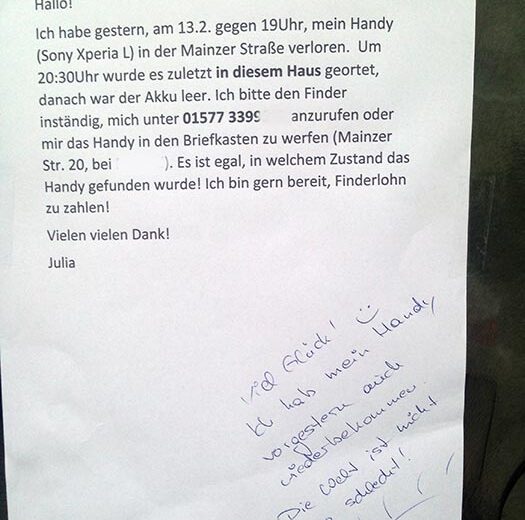 Hallo!
Ich habe gestern, am 13.2. gegen 19Uhr, mein Handy
(Sony Xperia L) in der Mainzer Straße verloren. Um
20:30Uhr wurde es zuletzt in diesem Haus geortet,
danach war der Akku leer. Ich bitte den Finder
inständig, mich unter 01577 339 anzurufen oder
mir das Handy in den Briefkasten zu werfen (Mainzer
Str. 20, bei ). Es ist egal, in welchem Zustand das
Handy gefunden wurde! Ich bin gern bereit, Finderlohn
zu zahlen!
Vielen vielen Dank!
Julia
Viel Glück! :)
Ich hab mein Handy
vorgestern auch
wiederbekommen.
Die Welt ist nicht
schlecht!